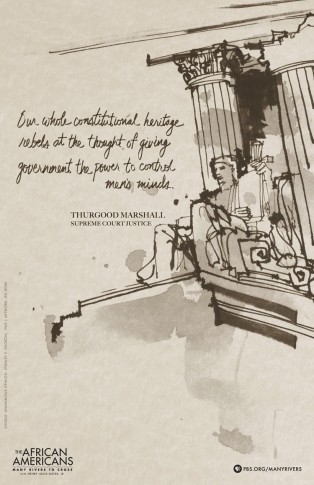 Our whole constitutional heritage
rebels at the thought of giving
government the power to control
men's minds.
THURGOOD MARSHALL
SUPREME COURT JUSTICE
THE AFRICAN
AMERICANS
MANY RIVERS TO CROSS
WITH HENRY LOUIS GATES, JR.
PBS.ORG/MANYRIVERS